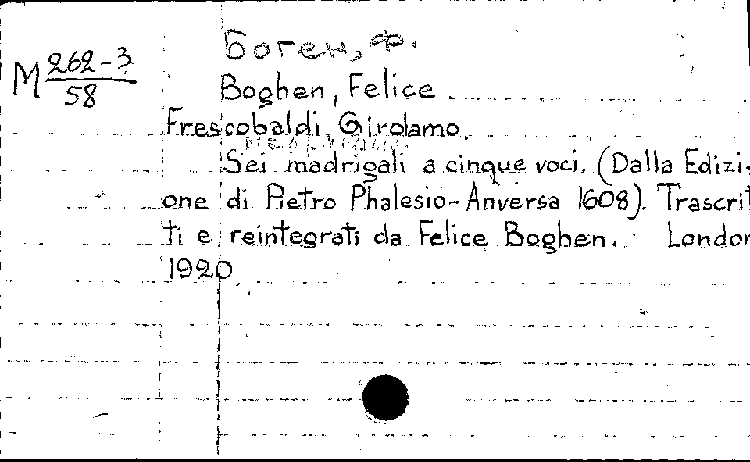 Боген, Ф.
M 262-3
58
Boghen, Felice
Frescobaldi, Girolamo.
Sei madrigali a cinque voci. (Dalla Edizi-
one di Pietro Phalesio-Anversa 1608). Trascrit
ti e reintegrati da Felice Boghen. London
1920